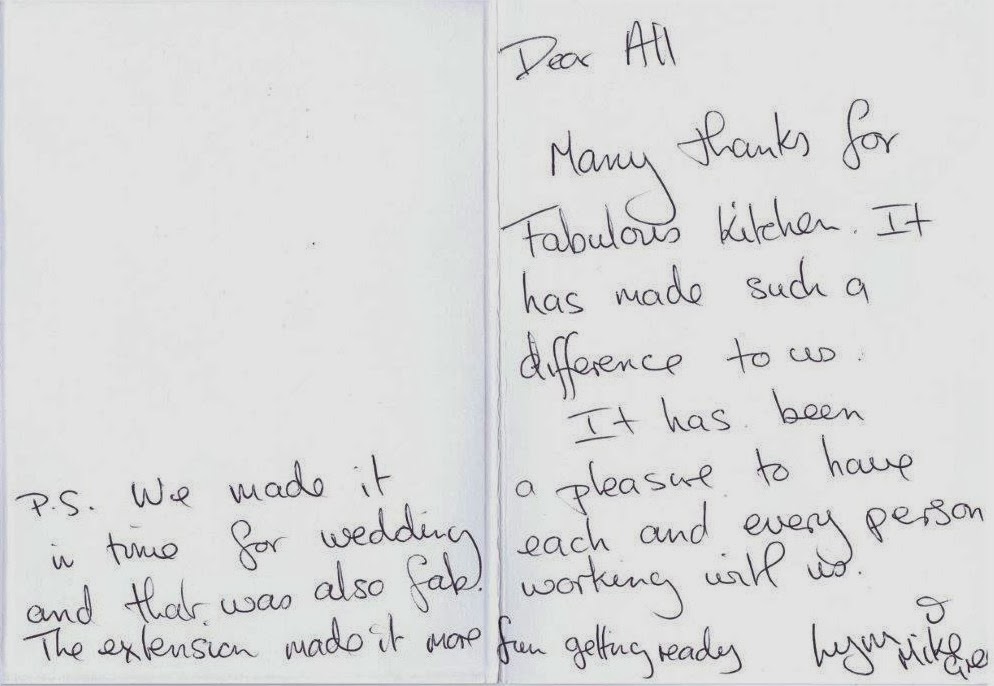 Dear All
Many thanks for
Fabulous Kitchen. It
has made such a
difference to us.
It has been
a pleasure to have
each and every person
working with us.
Mike
P.S. We made it
in time for wedding
and that was also fab.
The extension made it more fun getting ready